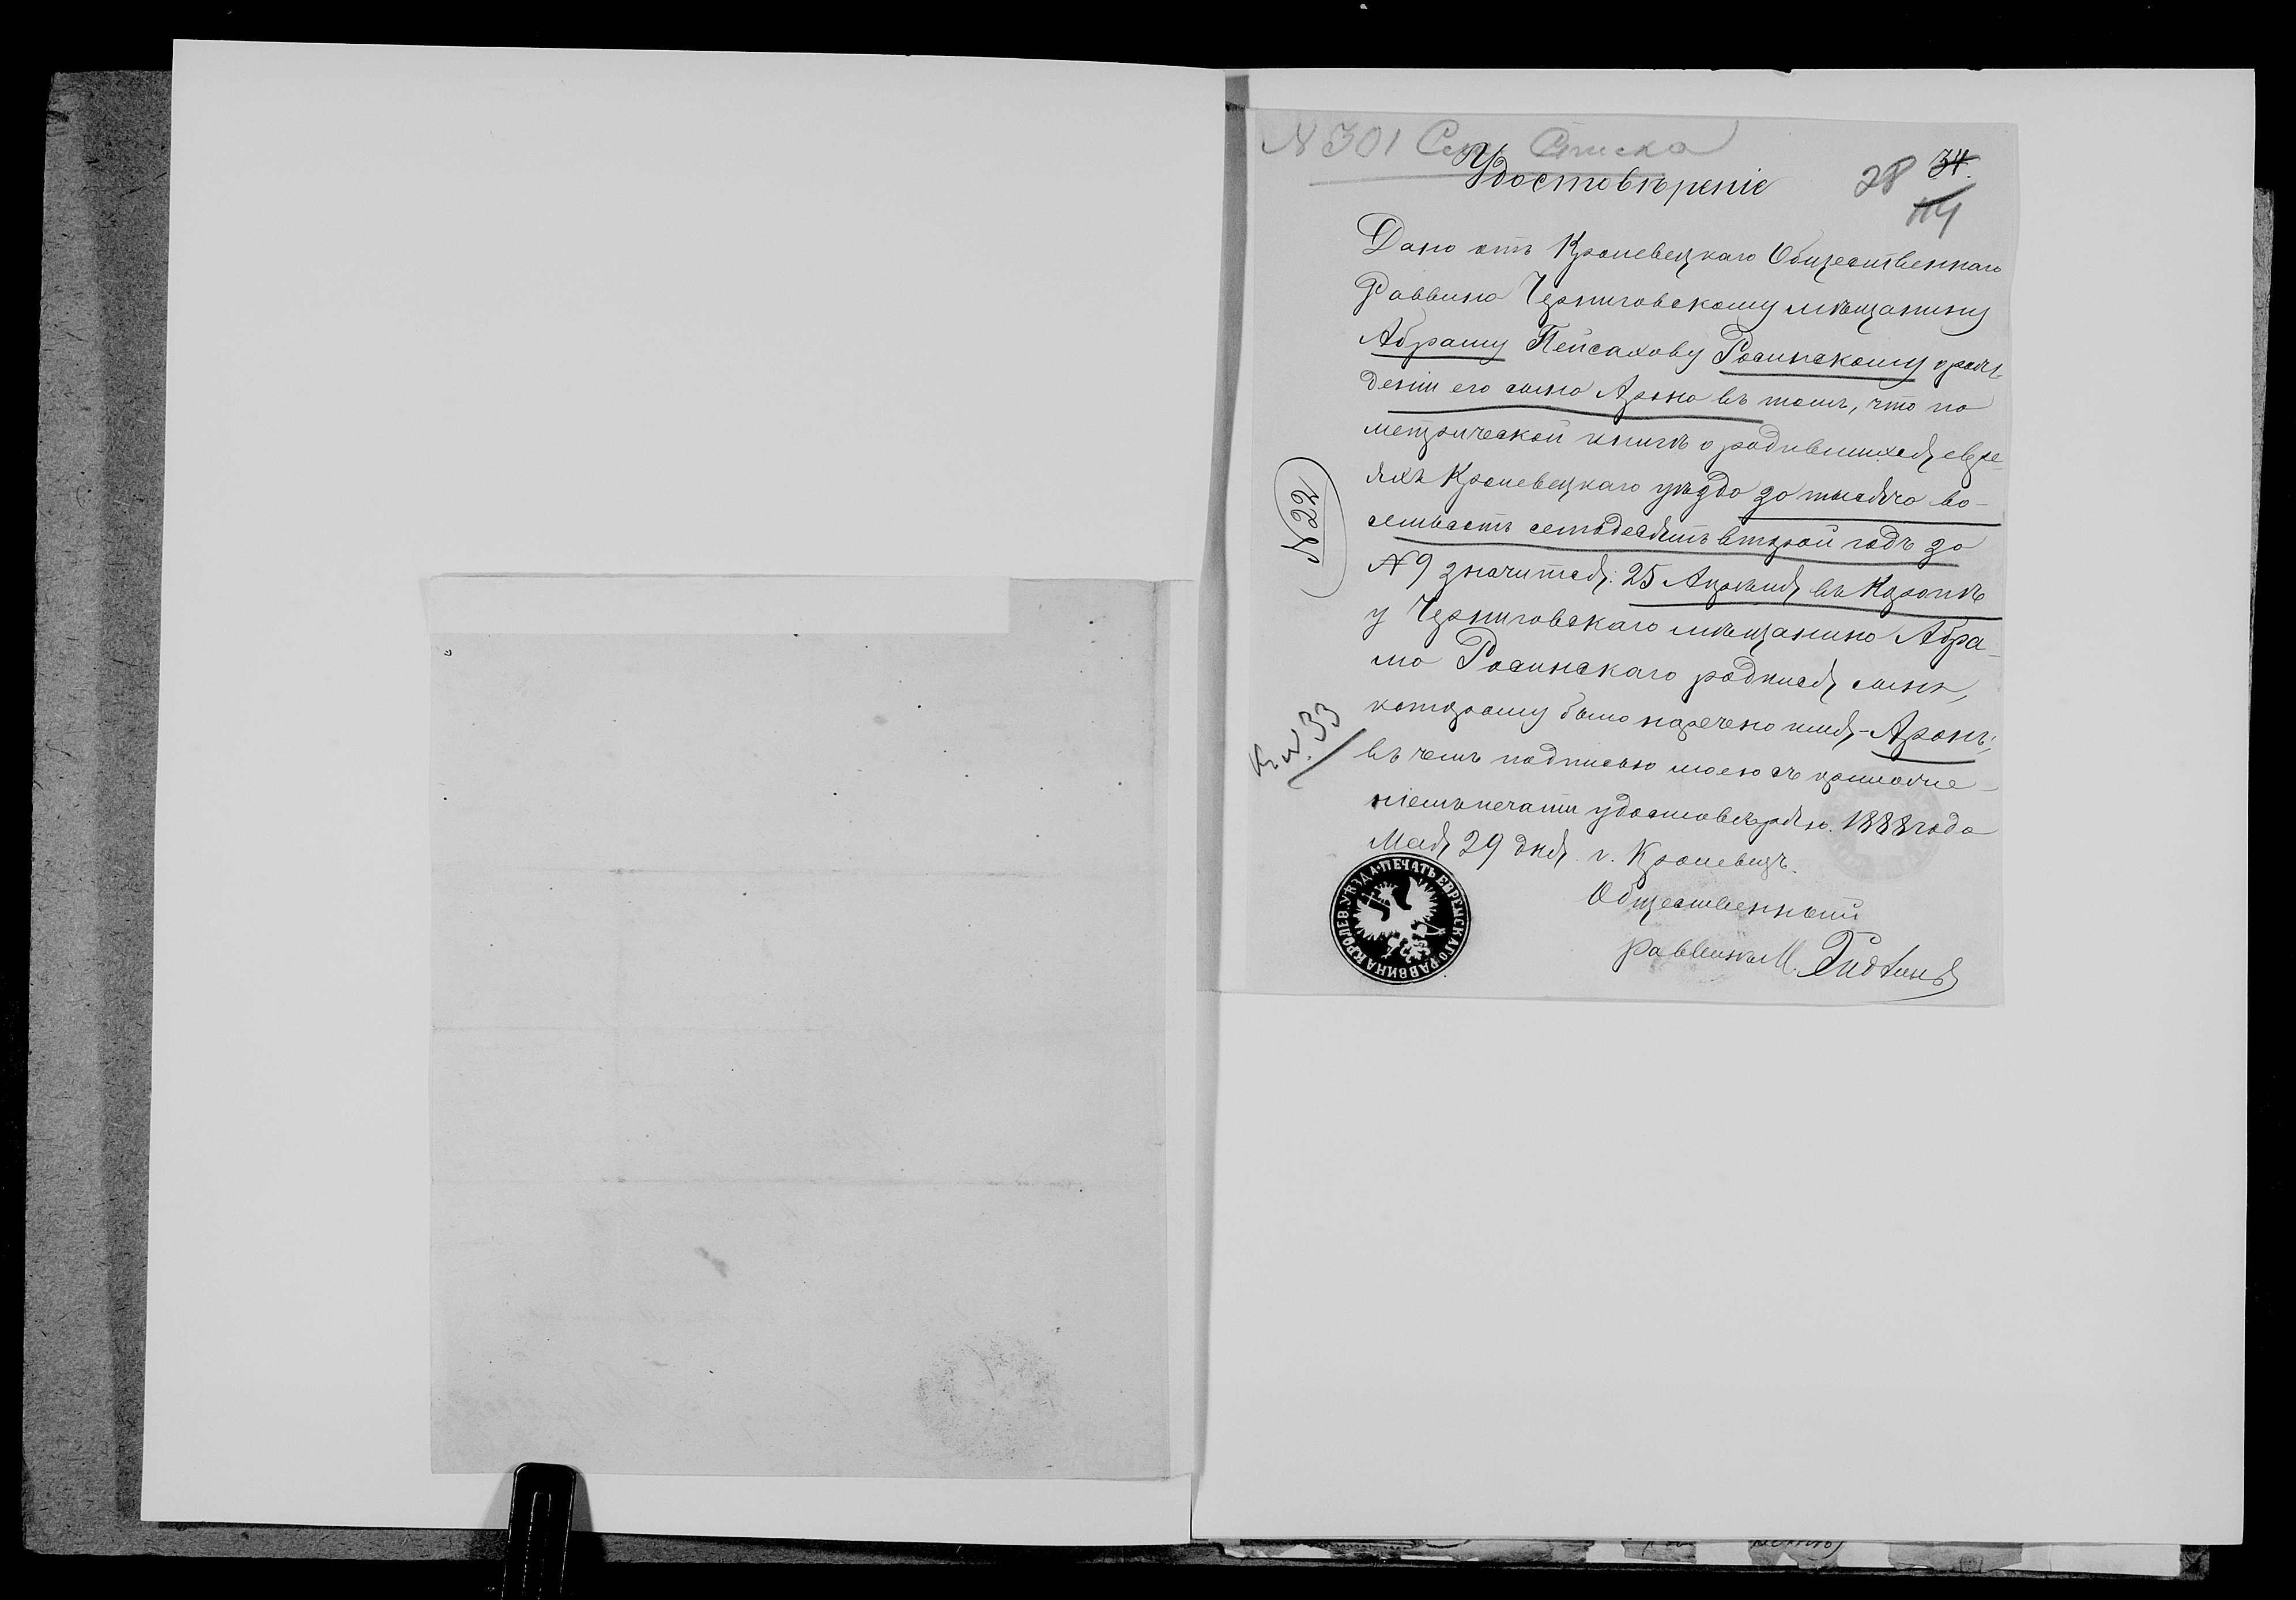 N 301 Сем. Списка
Удостовѣреніе
28 34.
114
Дано отъ Кролевецкаго Общественнаго
Раввина Черниговскому мѣщанину
Абраму Пейсахову Росинскому о рож-
деніи его сына Арона въ томъ, что по
метрической книгѣ о родившихся евре-
яхъ Кролевецкаго уѣзда за тысяча во-
семьсотъ семьдесятъ второй годъ за
N 9 значится: 25 Апрѣля въ
у Черниговскаго мѣщанина Абра-
ма Росинскаго родился сынъ,
которому было наречено имя-Аронъ;
въ чемъ подписью моею съ приложе-
ніемъ печати удостовѣряю. 1888 года
Мая 29 дня. г. Кролевецъ.
Общественный
раввинъ М.
N 22
33
ПЕЧАТЬ ЕВРЕЙСКАГО РАВВИНА КРОЛЕВ. УѢЗДА